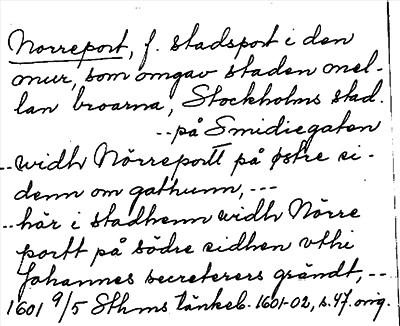 Norreport, f. stadsport i den
mur, som omgav staden mel-
lan broarna, Stockholms stad.
--på Smidiegaten
--widh Nörreportt på østre si-
denn om gathunn, ---
--här i stadhenn widh Nörre
portt på södre sidhen vthi
Johannes secreterers gråndt, --
1601 9/5 Sthms tänkeb. 1601-02, s. 47. orig.